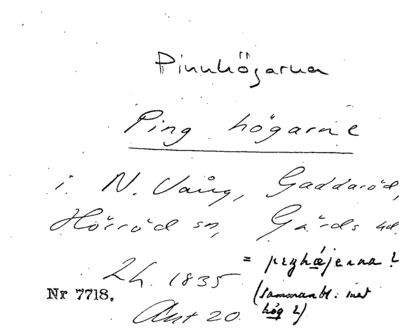 Pinnhögarna
Ping högarne
i N. Vång, Gaddaröd,
Hörröd sn, Gärds hd.
Lh. 1835 = pıŋhæjerna?
Nr 7718. Akt 20 (sammanbl. med hög?)